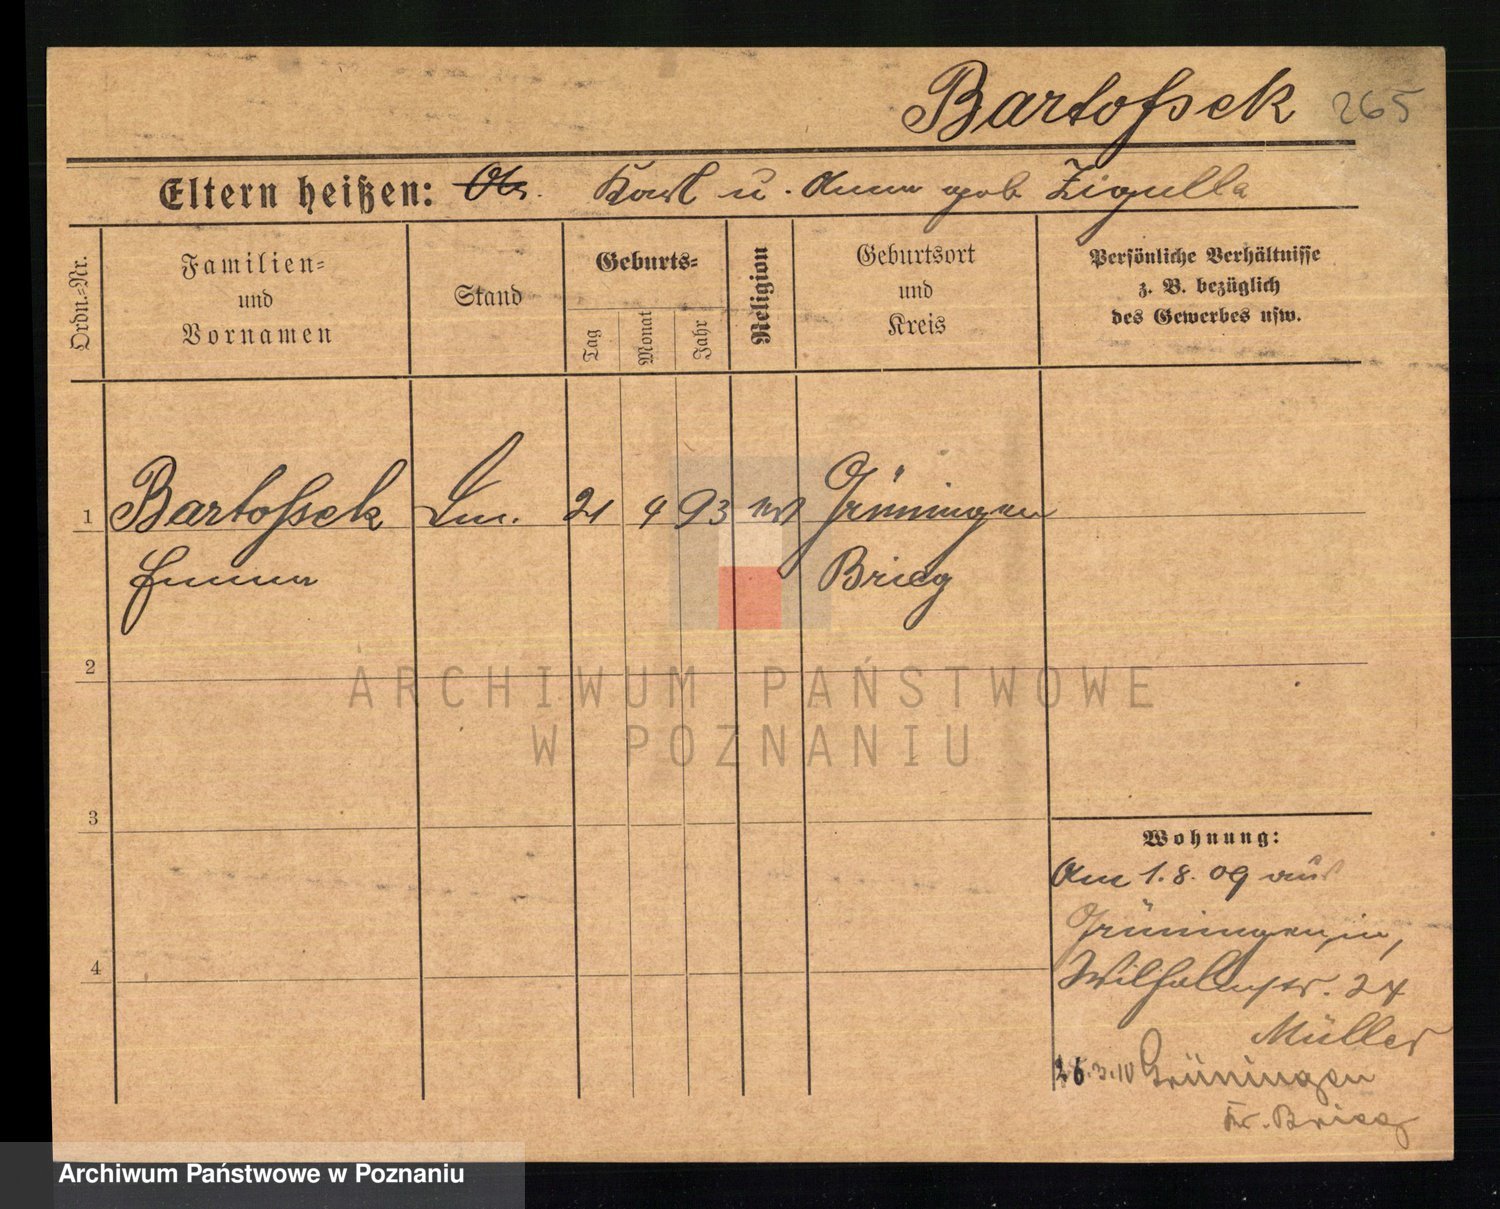 Bartoſsek 265
Eltern heißen: Karl u. Anna geb Zigulla
Ordn.=Nr.
Familien=
und
Vornamen
Stand
Geburts=
Tag
Monat
Jahr
Religion
Geburtsort
und
Kreis
Persönliche Verhältnisse
z. B. bezüglich
des Gewerbes usw.
1 Bartoſsek 21 4 93 Grüningen
Emma Brieg
2
3
4
Wohnung:
Am 1.8.09 aus
Grüningen, in,
Wilhelmstr. 24
Müller
26.3.10 Grüningen
Kr. Brieg
ARCHIWUM PAŃSTWOWE
W POZNANIU
Archiwum Państwowe w Poznaniu